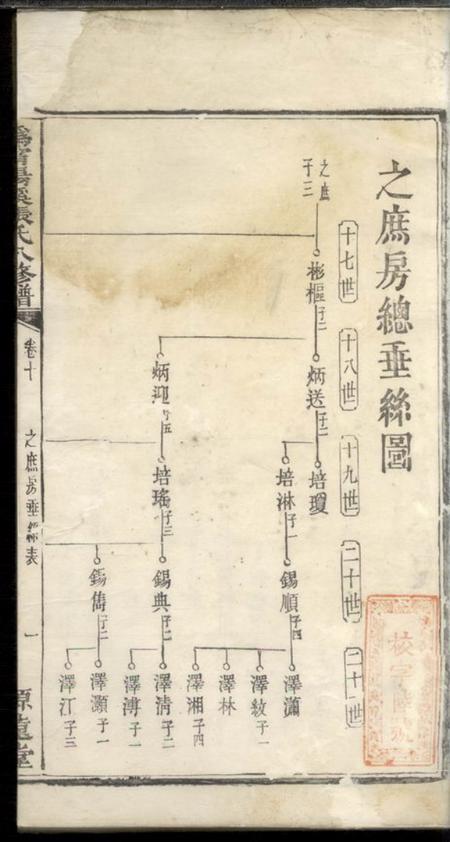 之庶房總垂絲圖
十七世
十八世
十九世
二十世
二十一世
之庶
子三
彬樞子二
炳送子二
培瓊
培淋子一
錫順子四
澤瀟
澤敘子一
澤林
澤湘子四
炳迎子五
培瑤子三
錫典子二
澤清子二
澤溥子一
錫雋子二
澤灝子一
澤江子三
張氏八修譜
卷十
之庶房垂絲表
一
源遠堂